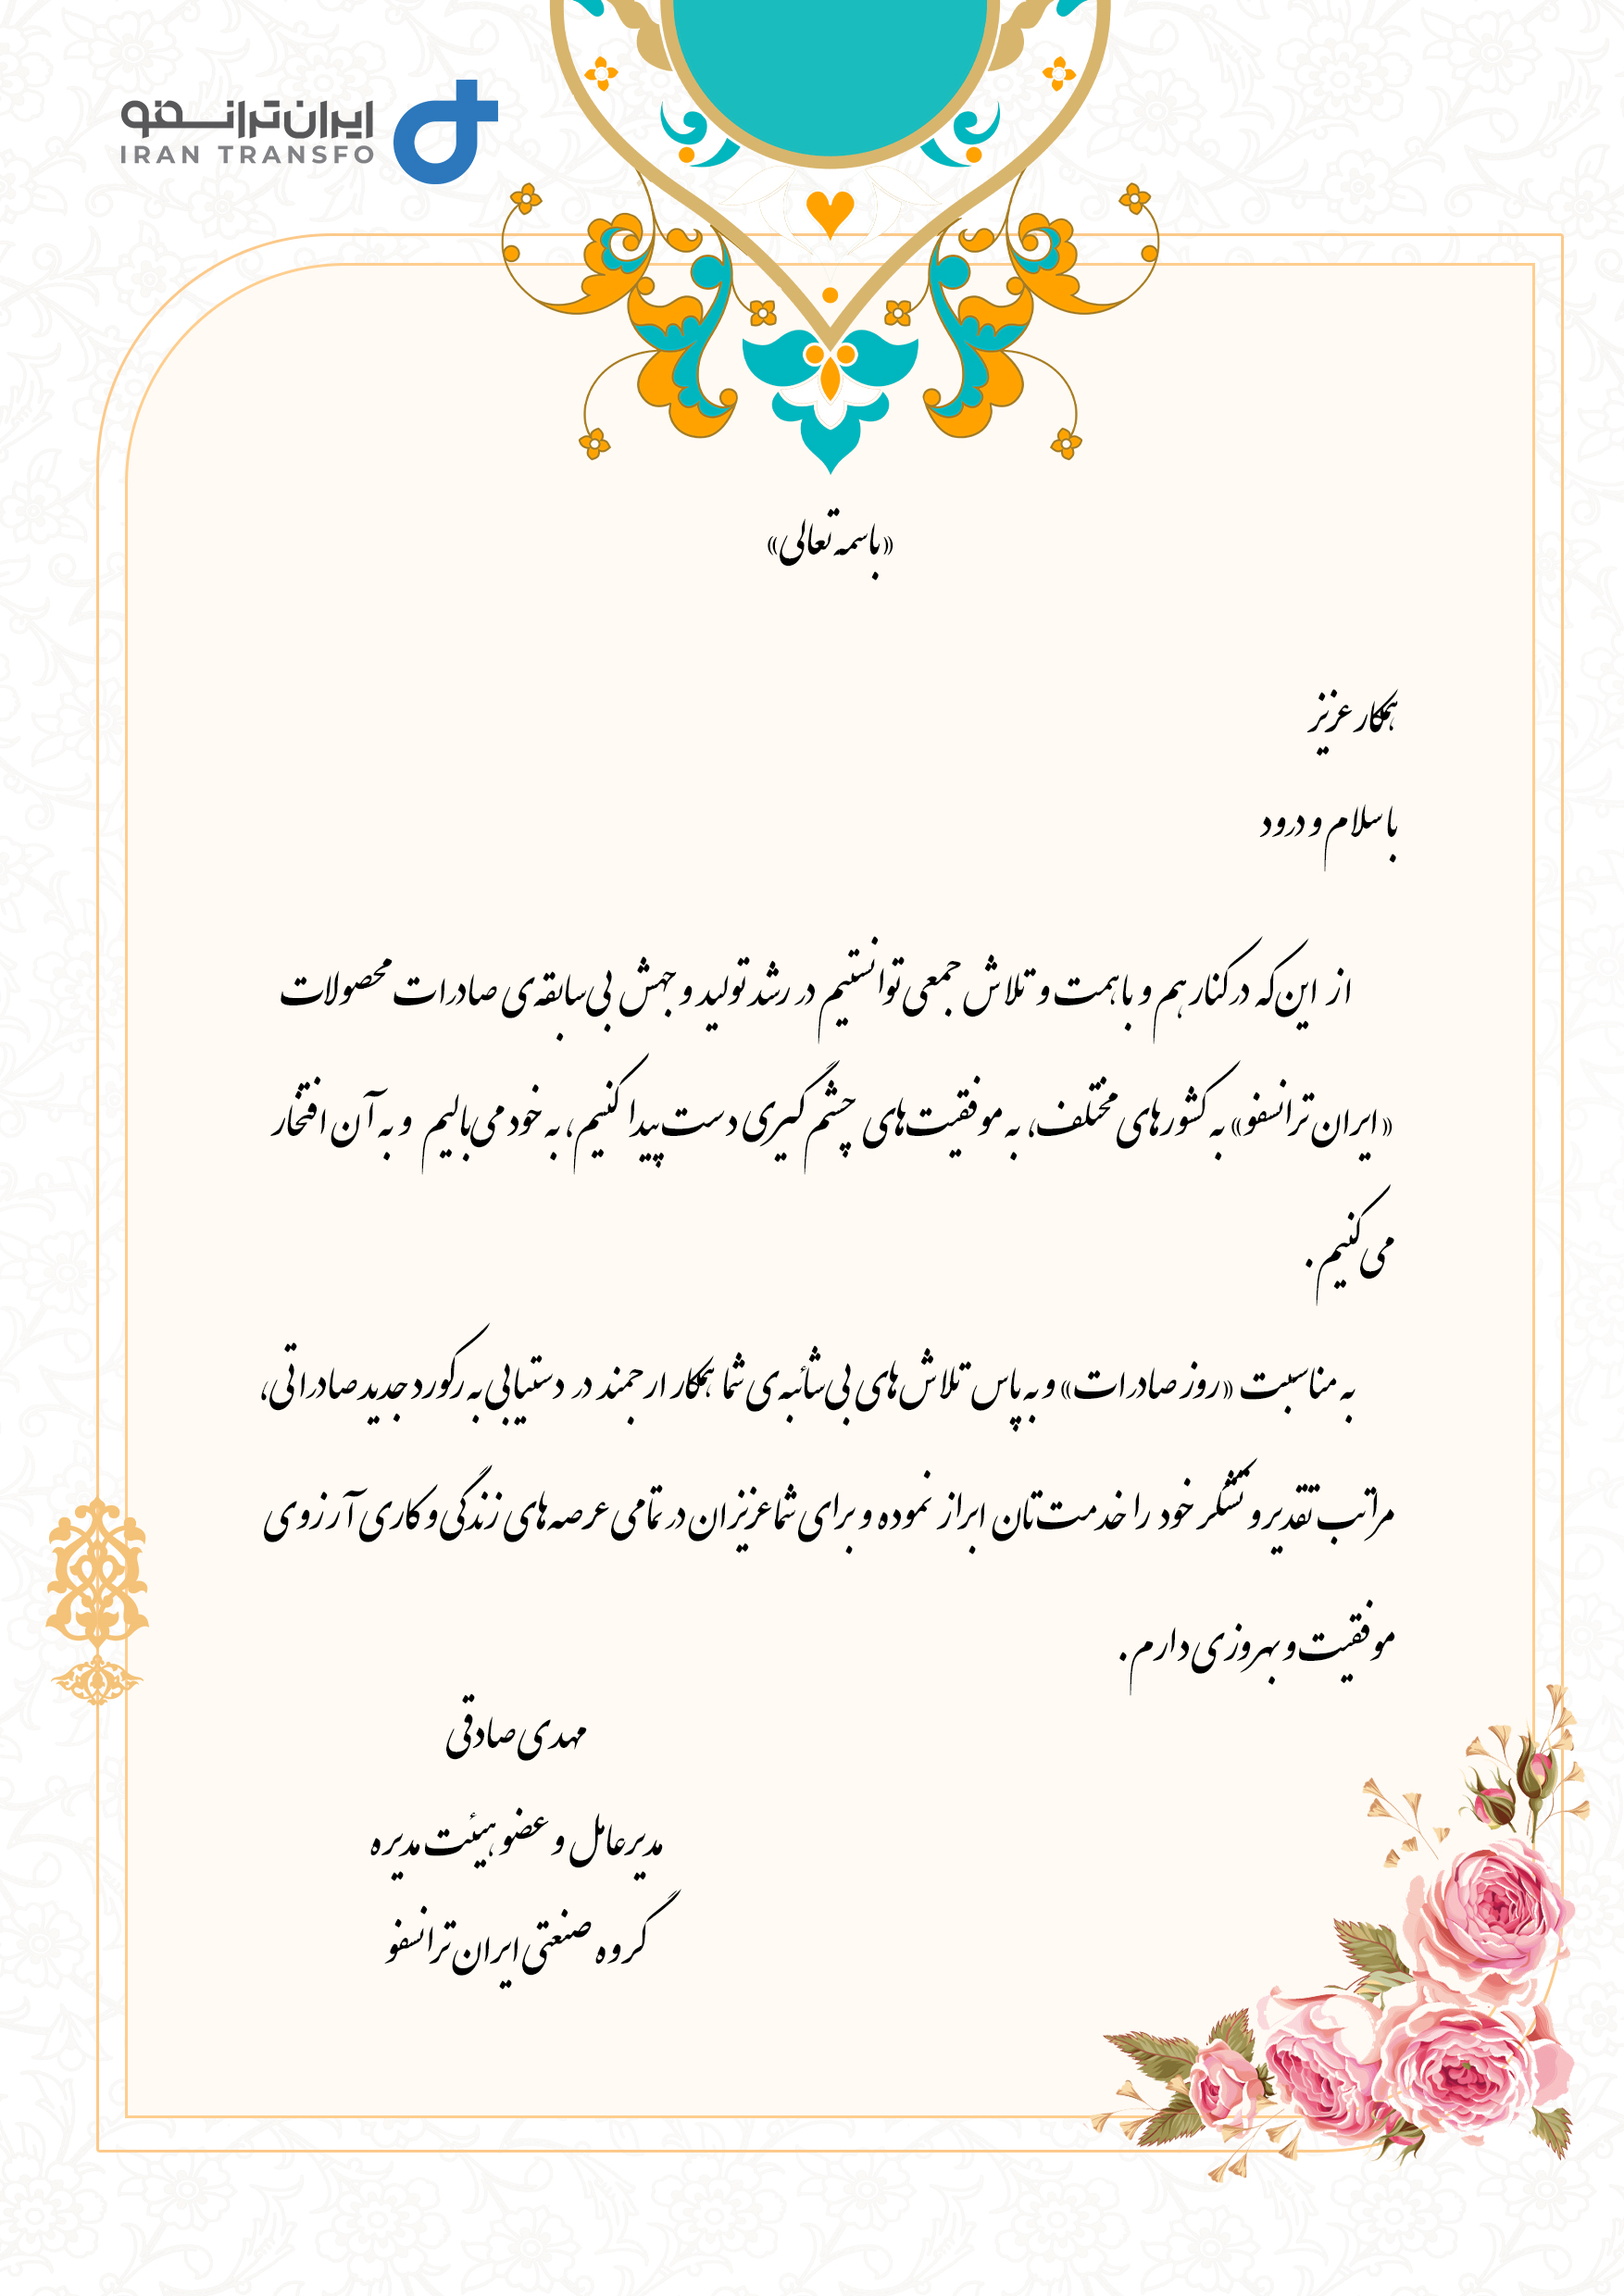 ایران‌ترانسفو
IRAN TRANSFO
«باسمه تعالی»
همکار عزیز
با سلام و درود
از این‌که در کنار هم و با همت و تلاش جمعی توانستیم در رشد تولید و جهش بی‌سابقه‌ی صادرات محصولات
«ایران ترانسفو» به کشورهای مختلف، به موفقیت‌های چشم‌گیری دست پیدا کنیم، به خود می‌بالیم و به آن افتخار
می‌کنیم.
به مناسبت «روز صادرات» و به پاس تلاش‌های بی‌شائبه‌ی شما همکار ارجمند در دستیابی به رکورد جدید صادراتی،
مراتب تقدیر و تشکر خود را خدمت‌تان ابراز نموده و برای شما عزیزان در تمامی عرصه‌های زندگی و کاری آرزوی
موفقیت و بهروزی دارم.
مهدی صادقی
مدیرعامل و عضو هیئت مدیره
گروه صنعتی ایران‌ترانسفو